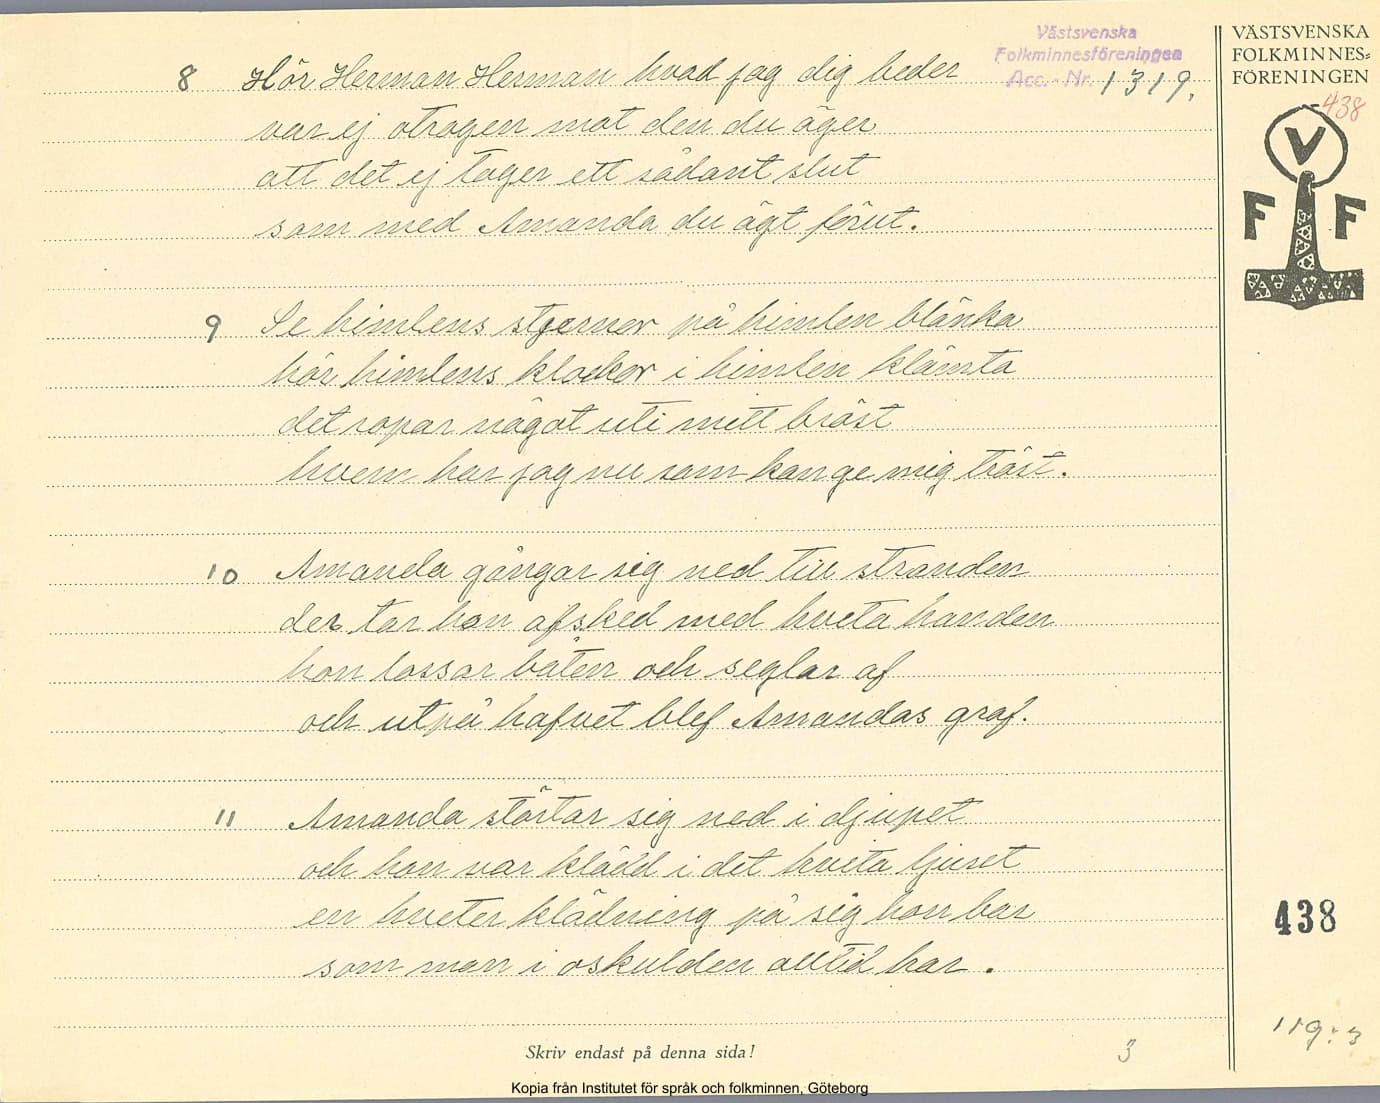 Västsvenska
Folkminnesföreningen
Acc.-Nr. 1319.
VÄSTSVENSKA
FOLKMINNES-
FÖRENINGEN
438
V
F F
8 Hör Herman Herman hvad jag dig beder
var ej otrogen mot den du äger
att det ej tager ett sådant slut
som med Amanda du ägt förut.
9 Se himlens stjernor på himlen blänka
hör himlens klockor i himlen klämta
det ropar något uti mitt bröst
hvem har jag nu som kan ge mig tröst.
10 Amanda gångar sig ned till stranden
der tar hon afsked med hvita handen
hon lossar båten och seglar af
och utpå hafvet blef Amandas graf.
11 Amanda störtar sig ned i djupet
och hon var klädd i det hvita ljuset
en hviter klädning på sig hon bar
som man i oskulden alltid har.
438
119:3
Skriv endast på denna sida!
3
Kopia från Institutet för språk och folkminnen, Göteborg